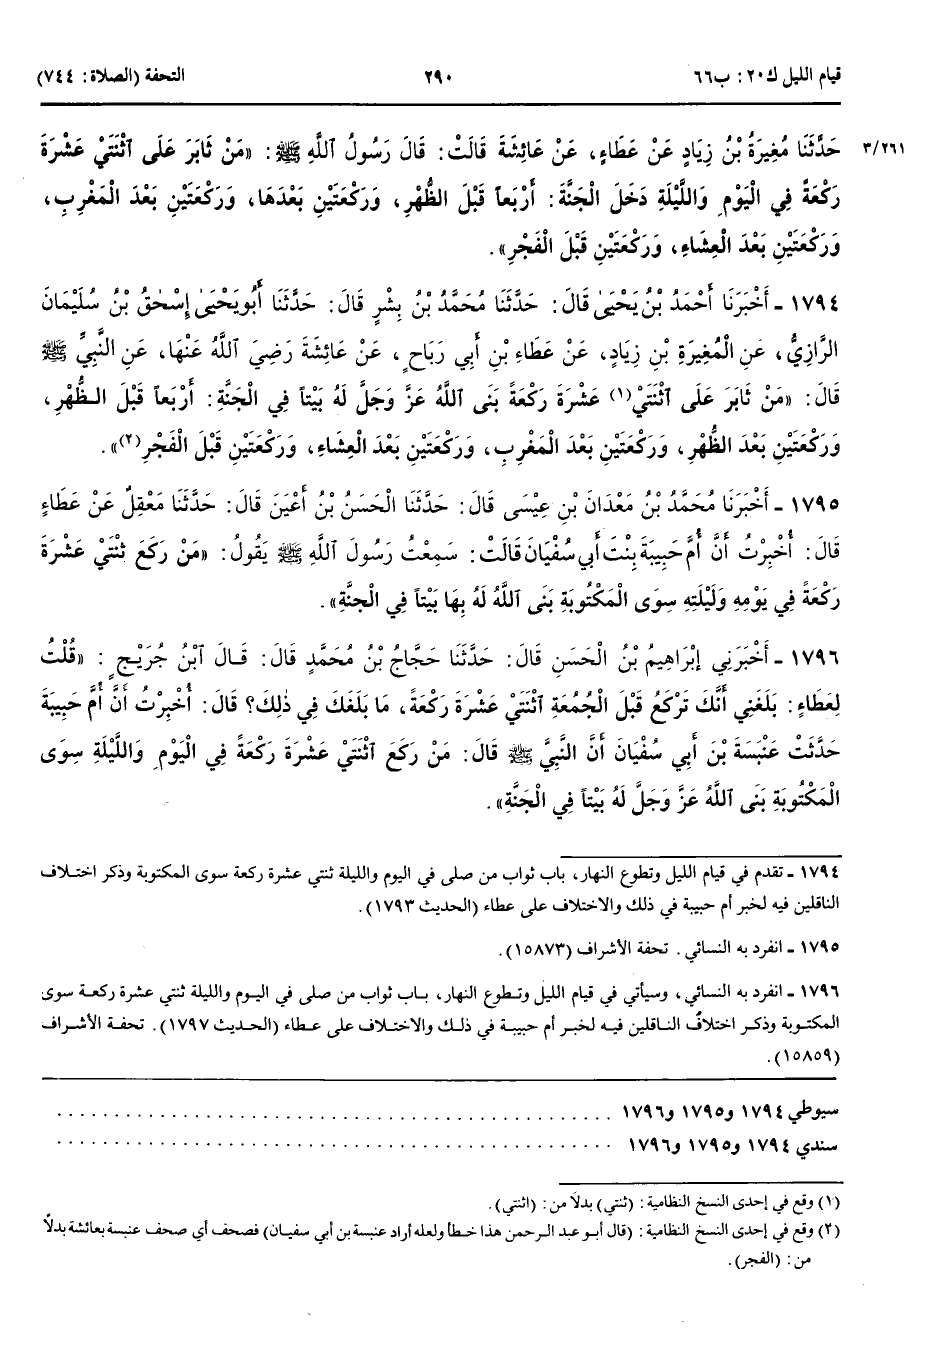 قيام الليل ك٢٠: ب٦٦ ٢٩٠ التحفة (الصلاة: ٧٤٤)
٣/٢٦١ حَدَّثَنَا مُغِيرَةُ بْنُ زِيَادٍ عَنْ عَطَاءٍ، عَنْ عَائِشَةَ قَالَتْ: قَالَ رَسُولُ ٱللَّهِ ﷺ: «مَنْ ثَابَرَ عَلَى ٱثْنَتَيْ عَشْرَةَ
رَكْعَةً فِي الْيَوْمِ وَاللَّيْلَةِ دَخَلَ الْجَنَّةَ: أَرْبَعاً قَبْلَ الظُّهْرِ، وَرَكْعَتَيْنِ بَعْدَهَا، وَرَكْعَتَيْنِ بَعْدَ الْمَغْرِبِ،
وَرَكْعَتَيْنِ بَعْدَ الْعِشَاءِ، وَرَكْعَتَيْنِ قَبْلَ الْفَجْرِ».
١٧٩٤ - أَخْبَرَنَا أَحْمَدُ بْنُ يَحْيَىٰ قَالَ: حَدَّثَنَا مُحَمَّدُ بْنُ بِشْرٍ قَالَ: حَدَّثَنَا أَبُو يَحْيَىٰ إِسْحٰقُ بْنُ سُلَيْمَانَ
الرَّازِيُّ، عَنِ الْمُغِيرَةِ بْنِ زِيَادٍ، عَنْ عَطَاءِ بْنِ أَبِي رَبَاحٍ، عَنْ عَائِشَةَ رَضِيَ ٱللَّهُ عَنْهَا، عَنِ النَّبِيِّ ﷺ
قَالَ: «مَنْ ثَابَرَ عَلَى ٱثْنَتَيْ(١) عَشْرَةَ رَكْعَةً بَنَى ٱللَّهُ عَزَّ وَجَلَّ لَهُ بَيْتاً فِي الْجَنَّةِ: أَرْبَعاً قَبْلَ الظُّهْرِ،
وَرَكْعَتَيْنِ بَعْدَ الظُّهْرِ، وَرَكْعَتَيْنِ بَعْدَ الْمَغْرِبِ، وَرَكْعَتَيْنِ بَعْدَ الْعِشَاءِ، وَرَكْعَتَيْنِ قَبْلَ الْفَجْرِ(٢)».
١٧٩٥ - أَخْبَرَنَا مُحَمَّدُ بْنُ مَعْدَانَ بْنِ عِيْسَى قَالَ: حَدَّثَنَا الْحَسَنُ بْنُ أَعْيَنَ قَالَ: حَدَّثَنَا مَعْقِلٌ عَنْ عَطَاءٍ
قَالَ: أُخْبِرْتُ أَنَّ أُمَّ حَبِيبَةَ بِنْتَ أَبِي سُفْيَانَ قَالَتْ: سَمِعْتُ رَسُولَ اللَّهِ ﷺ يَقُولُ: «مَنْ رَكَعَ ثِنْتَيْ عَشْرَةَ
رَكْعَةً فِي يَوْمِهِ وَلَيْلَتِهِ سِوَى الْمَكْتُوبَةِ بَنَى ٱللَّهُ لَهُ بِهَا بَيْتاً فِي الْجَنَّةِ».
١٧٩٦ - أَخْبَرَنِي إِبْرَاهِيمُ بْنُ الْحَسَنِ قَالَ: حَدَّثَنَا حَجَّاجُ بْنُ مُحَمَّدٍ قَالَ: قَالَ ٱبْنُ جُرَيْجٍ: «قُلْتُ
لِعَطَاءٍ: بَلَغَنِي أَنَّكَ تَرْكَعُ قَبْلَ الْجُمُعَةِ ٱثْنَتَيْ عَشْرَةَ رَكْعَةً، مَا بَلَغَكَ فِي ذٰلِكَ؟ قَالَ: أُخْبِرْتُ أَنَّ أُمَّ حَبِيبَةَ
حَدَّثَتْ عَنْبَسَةَ بْنَ أَبِي سُفْيَانَ أَنَّ النَّبِيَّ ﷺ قَالَ: مَنْ رَكَعَ ٱثْنَتَيْ عَشْرَةَ رَكْعَةً فِي الْيَوْمِ وَاللَّيْلَةِ سِوَى
الْمَكْتُوبَةِ بَنَى ٱللَّهُ عَزَّ وَجَلَّ لَهُ بَيْتاً فِي الْجَنَّةِ».
١٧٩٤ - تقدم في قيام الليل وتطوع النهار، باب ثواب من صلى في اليوم والليلة ثنتي عشرة ركعة سوى المكتوبة وذكر اختلاف
الناقلين فيه لخبر أم حبيبة في ذلك والاختلاف على عطاء (الحديث ١٧٩٣).
١٧٩٥ - انفرد به النسائي. تحفة الأشراف (١٥٨٧٣).
١٧٩٦ - انفرد به النسائي، وسيأتي في قيام الليل وتطوع النهار، باب ثواب من صلى في اليوم والليلة ثنتي عشرة ركعة سوى
المكتوبة وذكر اختلاف الناقلين فيه لخبر أم حبيبة في ذلك والاختلاف على عطاء (الحديث ١٧٩٧). تحفة الأشراف
(١٥٨٥٩).
سيوطي ١٧٩٤ و١٧٩٥ و١٧٩٦ . . . . . . . . . . . . . . . . . . . . . . . . . . . . . . . . . . . . . . . .
سندي ١٧٩٤ و١٧٩٥ و١٧٩٦ . . . . . . . . . . . . . . . . . . . . . . . . . . . . . . . . . . . . . . . .
(١) وقع في إحدى النسخ النظامية: (ثنتي) بدلاً من: (اثنتي).
(٢) وقع في إحدى النسخ النظامية: (قال أبو عبد الرحمن هذا خطأ ولعله أراد عنبسة بن أبي سفيان) فصحف أي صحف عنبسة بعائشة بدلاً
من: (الفجر).